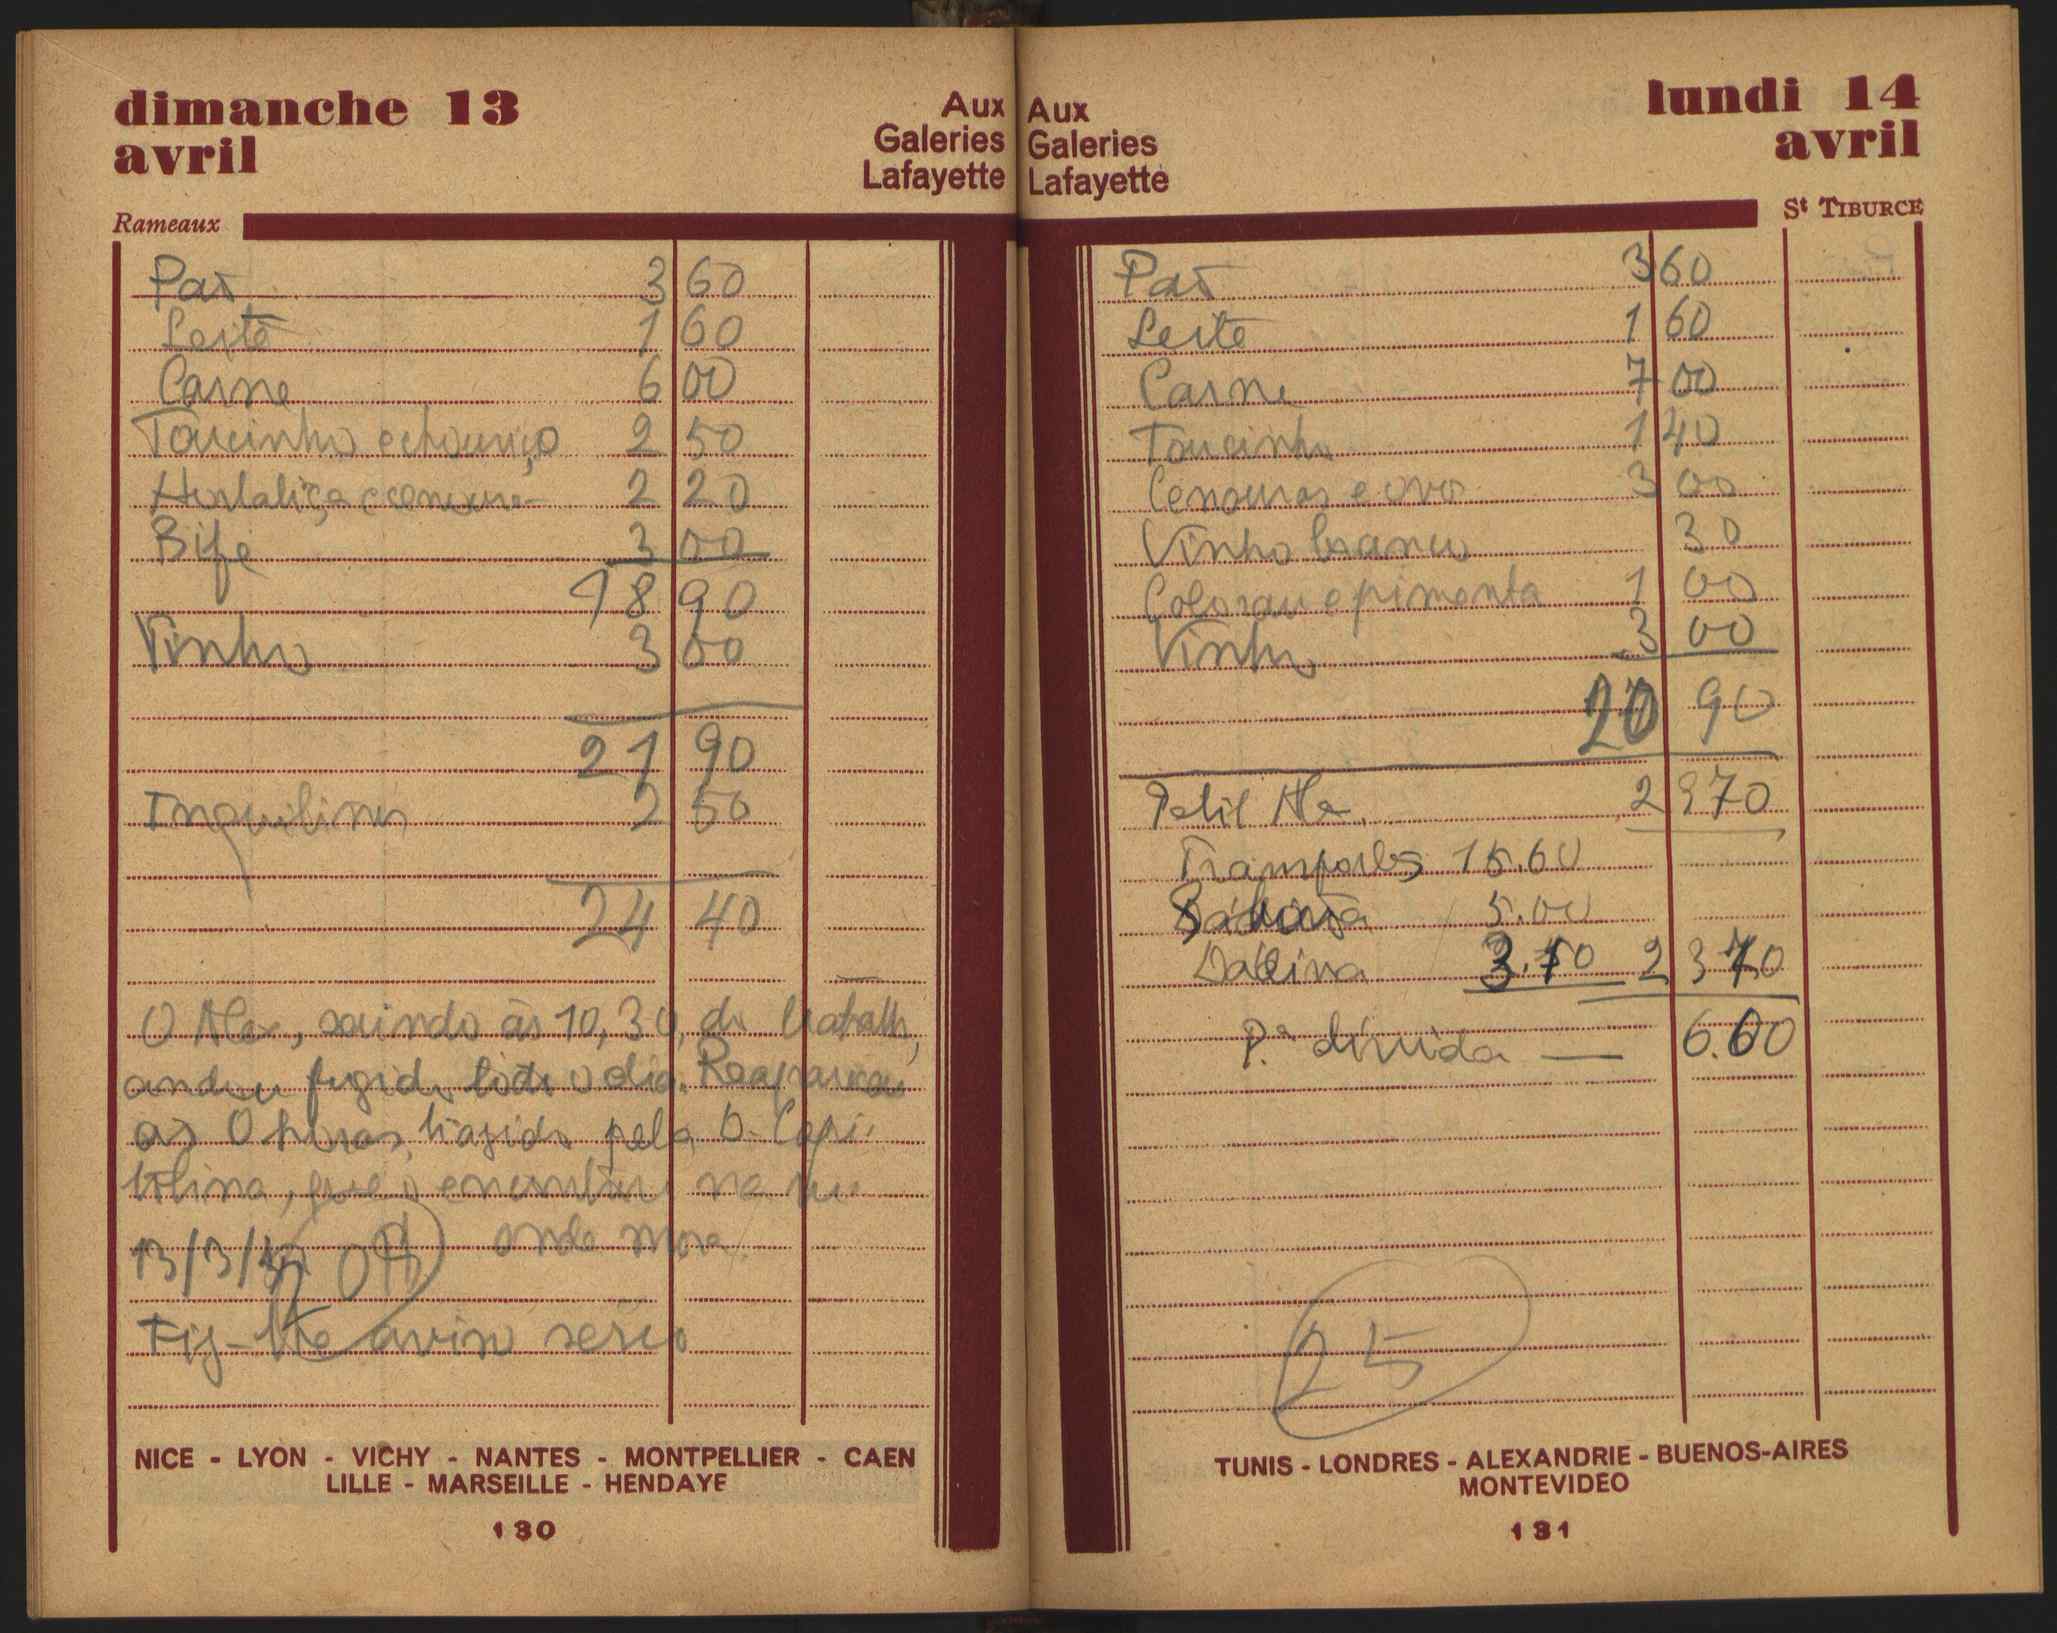 dimanche 13
avril
Aux
Galeries
Lafayette
Rameaux
Pão 3 60
Leite 1 60
Carne 6 00
Toucinho e chouriço 2 50
Hortaliça e 2 20
Bife 3 00
18 90
Vinho 3 00
21 90
Inquilinos 2 50
24 40
O Alex, saindo às 10,30, do trabalho,
andou fugido todo o dia. Reapareceu
às 0 horas, trazido pela D. Capi-
tolina, que o encontrou na rua
onde mora
13/3/
Fiz-lhe aviso sério
NICE - LYON - VICHY - NANTES - MONTPELLIER - CAEN
LILLE - MARSEILLE - HENDAYE
130
Aux
Galeries
Lafayette
lundi 14
avril
St TIBURCE
Pão 3 60
Leite 1 60
Carne 7 00
Toucinho 1 40
Cenouras e ovos 3 00
Vinho branco 30
Colorau e pimenta 1 00
Vinho 3 00
20 90
Petil Ale 2 9 70
Transportes 15.60
5.00
3.10 2 3 70
P.ª dívida — 6.00
25
TUNIS - LONDRES - ALEXANDRIE - BUENOS-AIRES
MONTEVIDEO
131